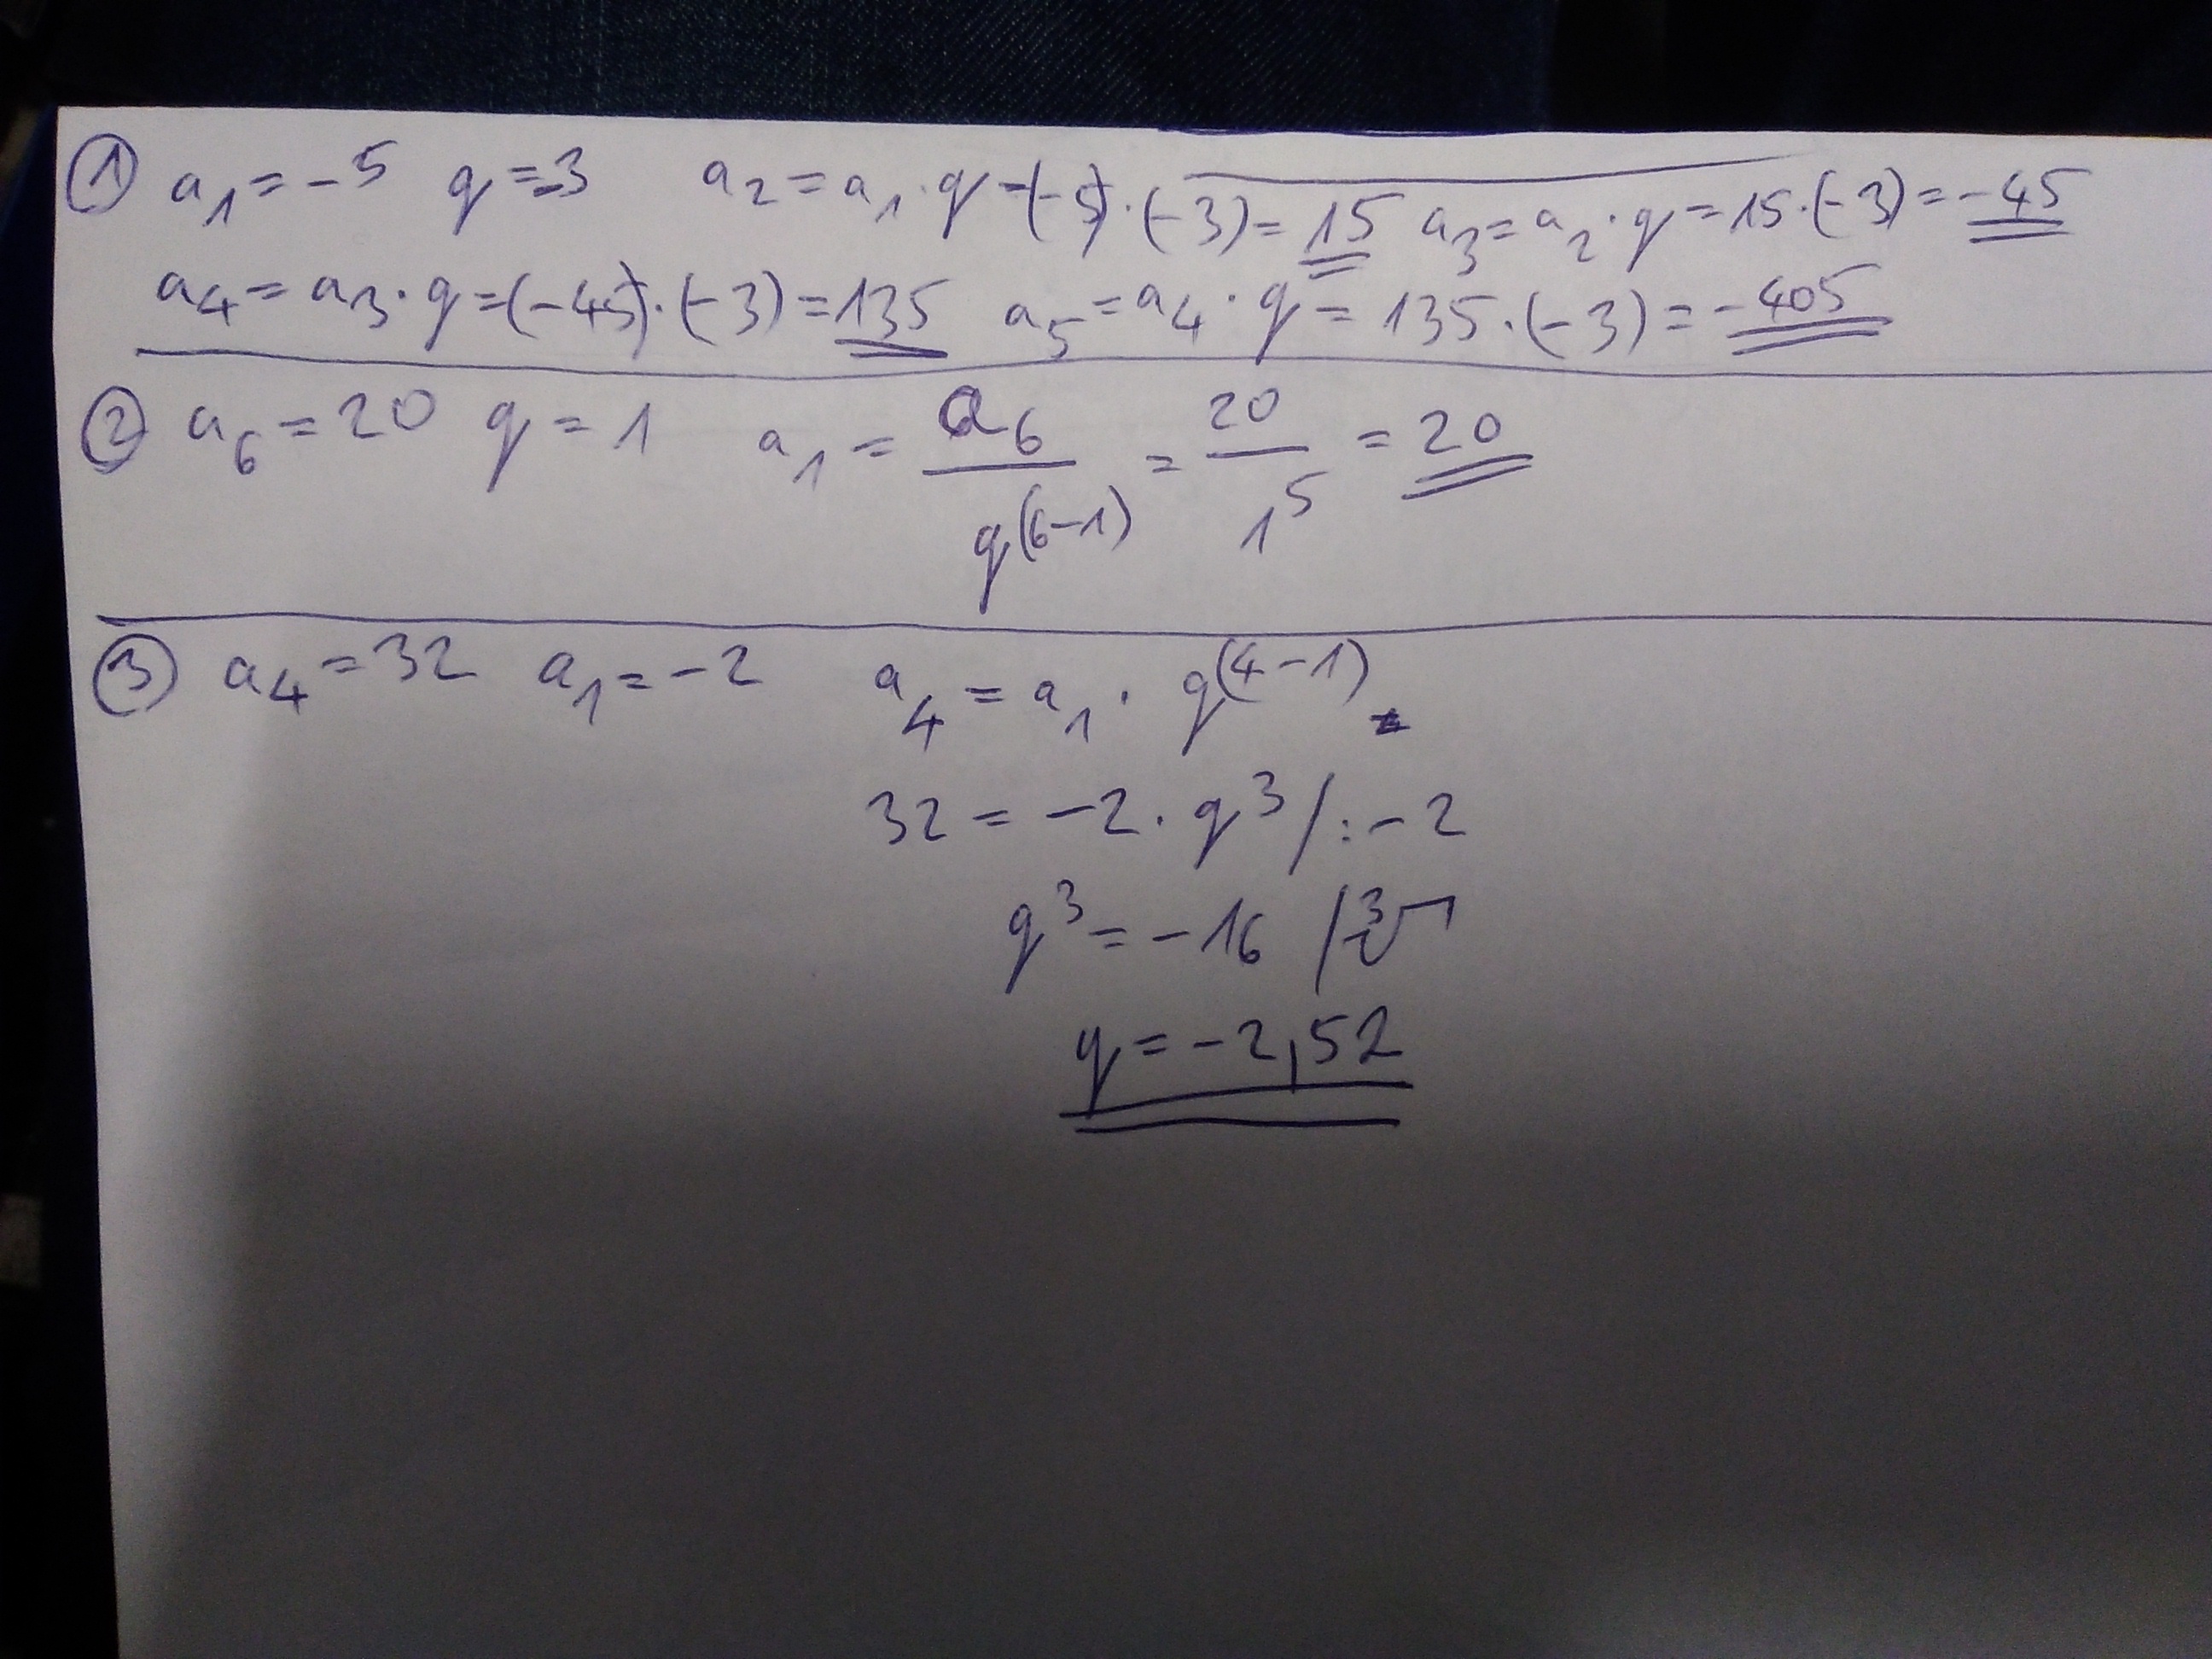 ① a₁ = -5 q = -3 a₂ = a₁ · q = (-5) · (-3) = 15 a₃ = a₂ · q = 15 · (-3) = -45
a₄ = a₃ · q = (-45) · (-3) = 135 a₅ = a₄ · q = 135 · (-3) = -405
② a₆ = 20 q = 1 a₁ = a₆ / q^(6-1) = 20 / 1⁵ = 20
③ a₄ = 32 a₁ = -2 a₄ = a₁ · q^(4-1)
32 = -2 · q³ / : -2
q³ = -16 / ³√
q = -2,52